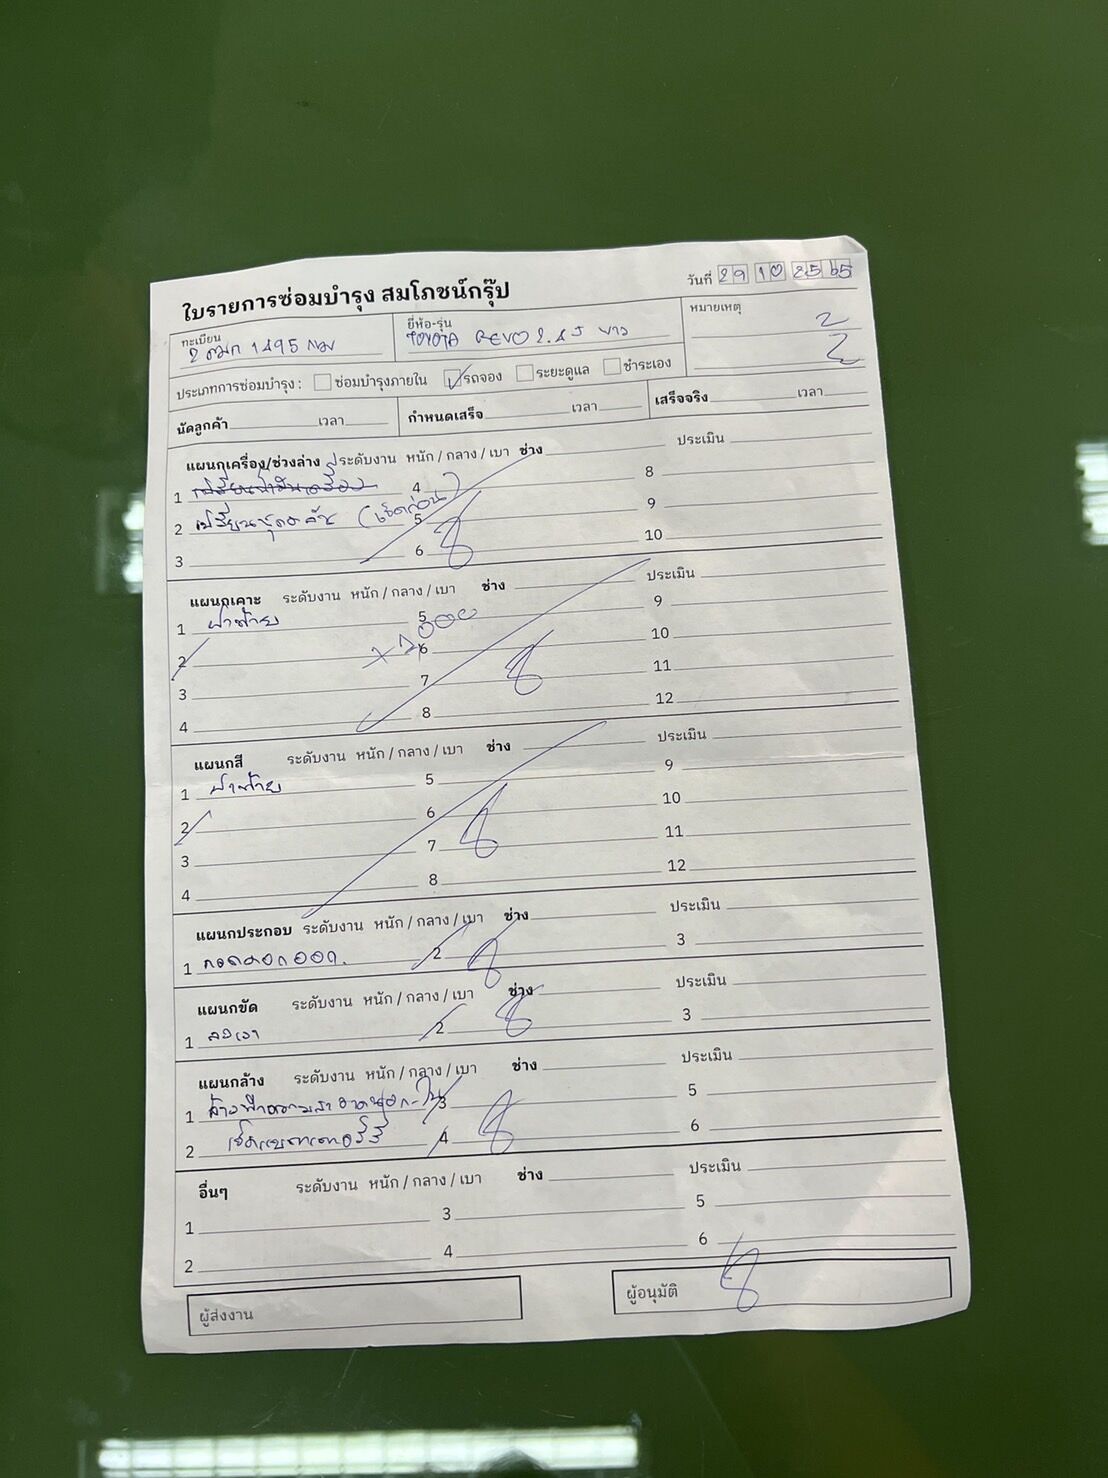 ใบรายการซ่อมบำรุง สมโภชน์กรุ๊ป
วันที่ 29 10 2565
ทะเบียน 2 ฒก 1495 กม
ยี่ห้อ-รุ่น TOYOTA REVO 2.4 J ขาว
หมายเหตุ 2
2
ประเภทการซ่อมบำรุง : ซ่อมบำรุงภายใน รถจอง ระยะดูแล ชำระเอง
นัดลูกค้า เวลา กำหนดเสร็จ เวลา เสร็จจริง เวลา
แผนกเครื่อง/ช่วงล่าง ระดับงาน หนัก / กลาง / เบา ช่าง ประเมิน
1 เปลี่ยนน้ำมันเครื่อง 4 8
2 เปลี่ยนชุดคลัช (เช็คก่อน) 5 9
3 6 10
แผนกเคาะ ระดับงาน หนัก / กลาง / เบา ช่าง ประเมิน
1 ฝาท้าย 5 9
2 6 10
3 7 11
4 8 12
แผนกสี ระดับงาน หนัก / กลาง / เบา ช่าง ประเมิน
1 ฝาท้าย 5 9
2 6 10
3 7 11
4 8 12
แผนกประกอบ ระดับงาน หนัก / กลาง / เบา ช่าง ประเมิน
1 2 3
แผนกขัด ระดับงาน หนัก / กลาง / เบา ช่าง ประเมิน
1 ลงเงา 2 3
แผนกล้าง ระดับงาน หนัก / กลาง / เบา ช่าง ประเมิน
1 ล้างทำความสะอาดนอก-ใน 3 5
2 เช็คแบตเตอรี่ 4 6
อื่นๆ ระดับงาน หนัก / กลาง / เบา ช่าง ประเมิน
1 3 5
2 4 6
ผู้ส่งงาน ผู้อนุมัติ